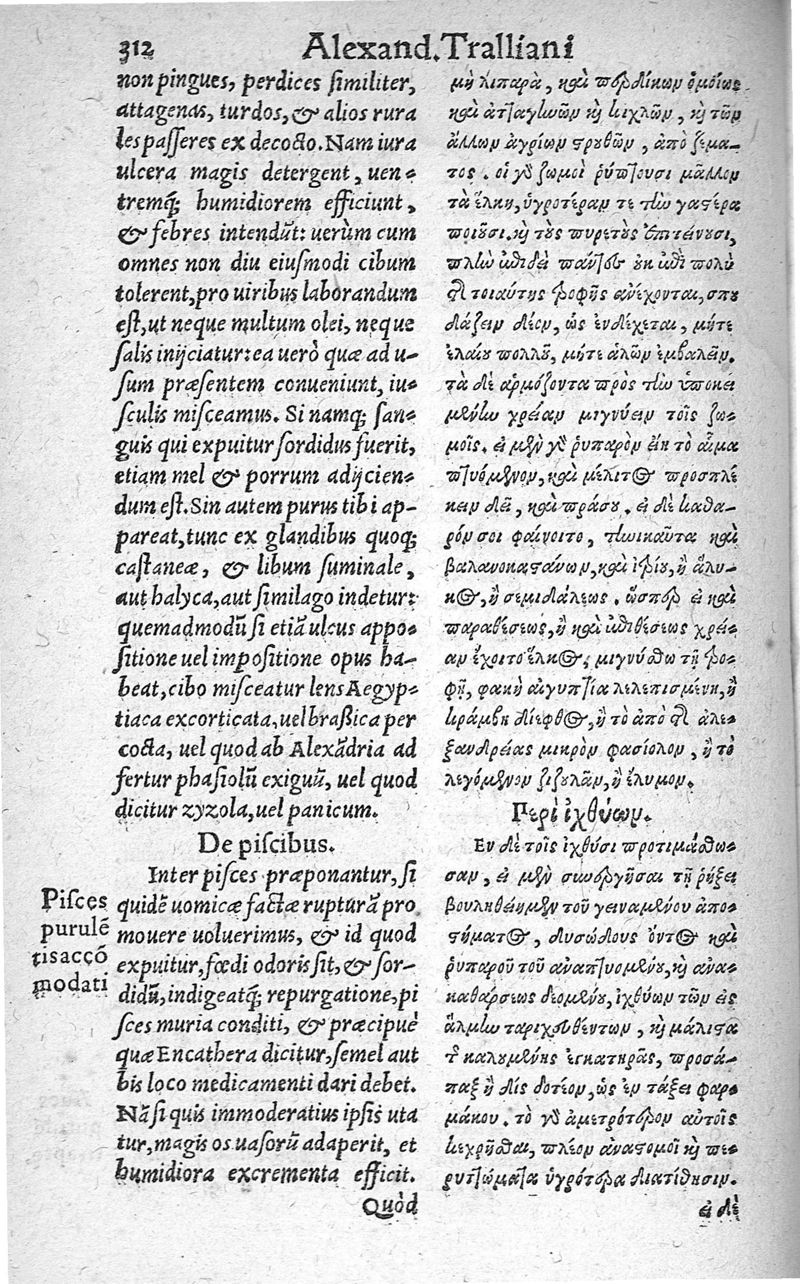 312 Alexand. Tralliani
non pingues, perdices similiter,
attagenas, turdos, & alios rura
les passeres ex decocto. Nam iura
ulcera magis detergent, uen-
tremq; humidiorem efficiunt,
& febres intendūt: uerùm cum
omnes non diu eiusmodi cibum
tolerent, pro uiribus laborandum
est, ut neque multum olei, neque
salis inijciatur: ea uerò quæ ad u-
sum præsentem conueniunt, iu-
sculis misceamus. Si namq; san-
guis qui expuitur sordidus fuerit,
etiam mel & porrum adijcien-
dum est. Sin autem purus tibi ap-
pareat, tunc ex glandibus quoq;
castaneæ, & libum suminale,
aut halyca, aut similago indetur:
quemadmodū si etiā ulcus appo-
sitione uel impositione opus ha-
beat, cibo misceatur lens Aegyp-
tiaca excorticata, uel brassica per
cocta, uel quod ab Alexādria ad
fertur phasiolū exiguū, uel quod
dicitur zyzola, uel panicum.
De piscibus.
Inter pisces præponantur, si
quidē uomicæ factæ rupturā pro
mouere uoluerimus, & id quod
expuitur, fœdi odoris sit, & sor-
didū, indigeatq; repurgatione, pi
sces muria conditi, & præcipuè
quæ Encathera dicitur, semel aut
bis loco medicamenti dari debet.
Nā si quis immoderatius ipsis uta
tur, magis os uasorū adaperit, et
humidiora excrementa efficit.
Quòd
Pisces
purulē
tis accō
modati
μὴ λιπαρὰ, καὶ περδίκων ὁμοίως
καὶ ἀτταγίωῶν καὶ κιχλῶν, καὶ τῶν
ἄλλων ἀγρίων στρουθῶν, ἀπὸ ζεμα-
τος. οἱ γὸ ζωμοὶ ῥύπτουσι μᾶλλον
τὰ ἕλκη, ὑγροτέραν τε τὴν γαστέρα
ποιοῦσι. καὶ τοὺς πυρετοὺς ἐπιτείνουσι,
πλὴν ἐπειδὴ πάντες οὐκ ἐπὶ πολὺ
τῆς τοιαύτης τροφῆς ἀνέχονται, σπου
δάζειν δέον, ὡς ἐνδέχεται, μήτε
ἐλαίου πολλοῦ, μήτε ἁλῶν ἐμβαλεῖν.
τὰ δὲ ἁρμόζοντα πρὸς τὴν ὑποκει
μένην χρείαν μιγνύειν τοῖς ζω-
μοῖς. εἰ μὲν γὸ ῥυπαρὸν εἴη τὸ αἷμα
πτυόμενον, καὶ μέλιτος προσπλέ
κειν δεῖ, καὶ πράσου. εἰ δὲ καθα-
ρόν σοι φαίνοιτο, τηνικαῦτα καὶ
βαλανοκαστάνων, καὶ ἰτρίου, ἢ ἅλυ-
κος, ἢ σεμιδάλεως. ὥσπερ εἰ καὶ
παραθέσεως, ἢ καὶ ἐπιθέσεως χρεί-
αν ἔχοι τὸ ἕλκος, μιγνύσθω τῇ τρο-
φῇ, φακῆ αἰγυπτία λελεπισμένη, ἢ
κράμβη δίεφθος, ἢ τὸ ἀπὸ τῆς ἀλε-
ξανδρείας μικρὸν φασίολον, ἢ τὸ
λεγόμενον ζιζουλὰν, ἢ ἔλυμον.
Περὶ ἰχθύων.
Ἐν δὲ τοῖς ἰχθύσι προτιμάσθω-
σαν, εἰ μὲν συνεργῆσαι τῇ ῥήξει
βουληθείημεν τοῦ γειναμένου ἀπο-
στήματος, δυσώδους ὄντος καὶ
ῥυπαροῦ τοῦ ἀναπτυομένου, καὶ ἀνα-
καθάρσεως δεομένου, ἰχθύων τῶν εἰς
ἅλμην ταριχευθέντων, καὶ μάλιστα
τῆς καλουμένης ἐγκατηρᾶς, προσά-
παξ ἢ δὶς δοτέον, ὡς ἐν τάξει φαρ-
μάκου. τὸ γὸ ἀμετρότερον αὐτοῖς
κεχρῆσθαι, πλέον ἀναστομοῖ καὶ πε-
ριττώματα ὑγρότερα διατίθησιν.
εἰ δὲ